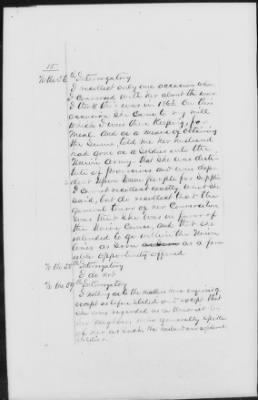 15
To the 26th Interrogatory
I recollect only one occasion when
I conversed with her about the war
I think this was in 1863. On this
occasion she came to my mill
which I was then keeping, for
meal. And as a means of obtaining
the same told me her husband
had gone as a soldier into the
Union Army. That she was desti-
tute of provisions and was depen-
dent upon her people for supplies
I cannot recollect exactly what she
said, but do recollect that the
general tenor of her conversation
was that she was in favor of
the Union Cause, and that she
intended to go within the Union
lines as soon as a favor-
able opportunity offered
To the 28th Interrogatory
I do not
To the 29th Interrogatory
I nothing as to the matters
except as before stated and except that
she was regarded as a Unionist by
her neighbors and generally spoken
of as such